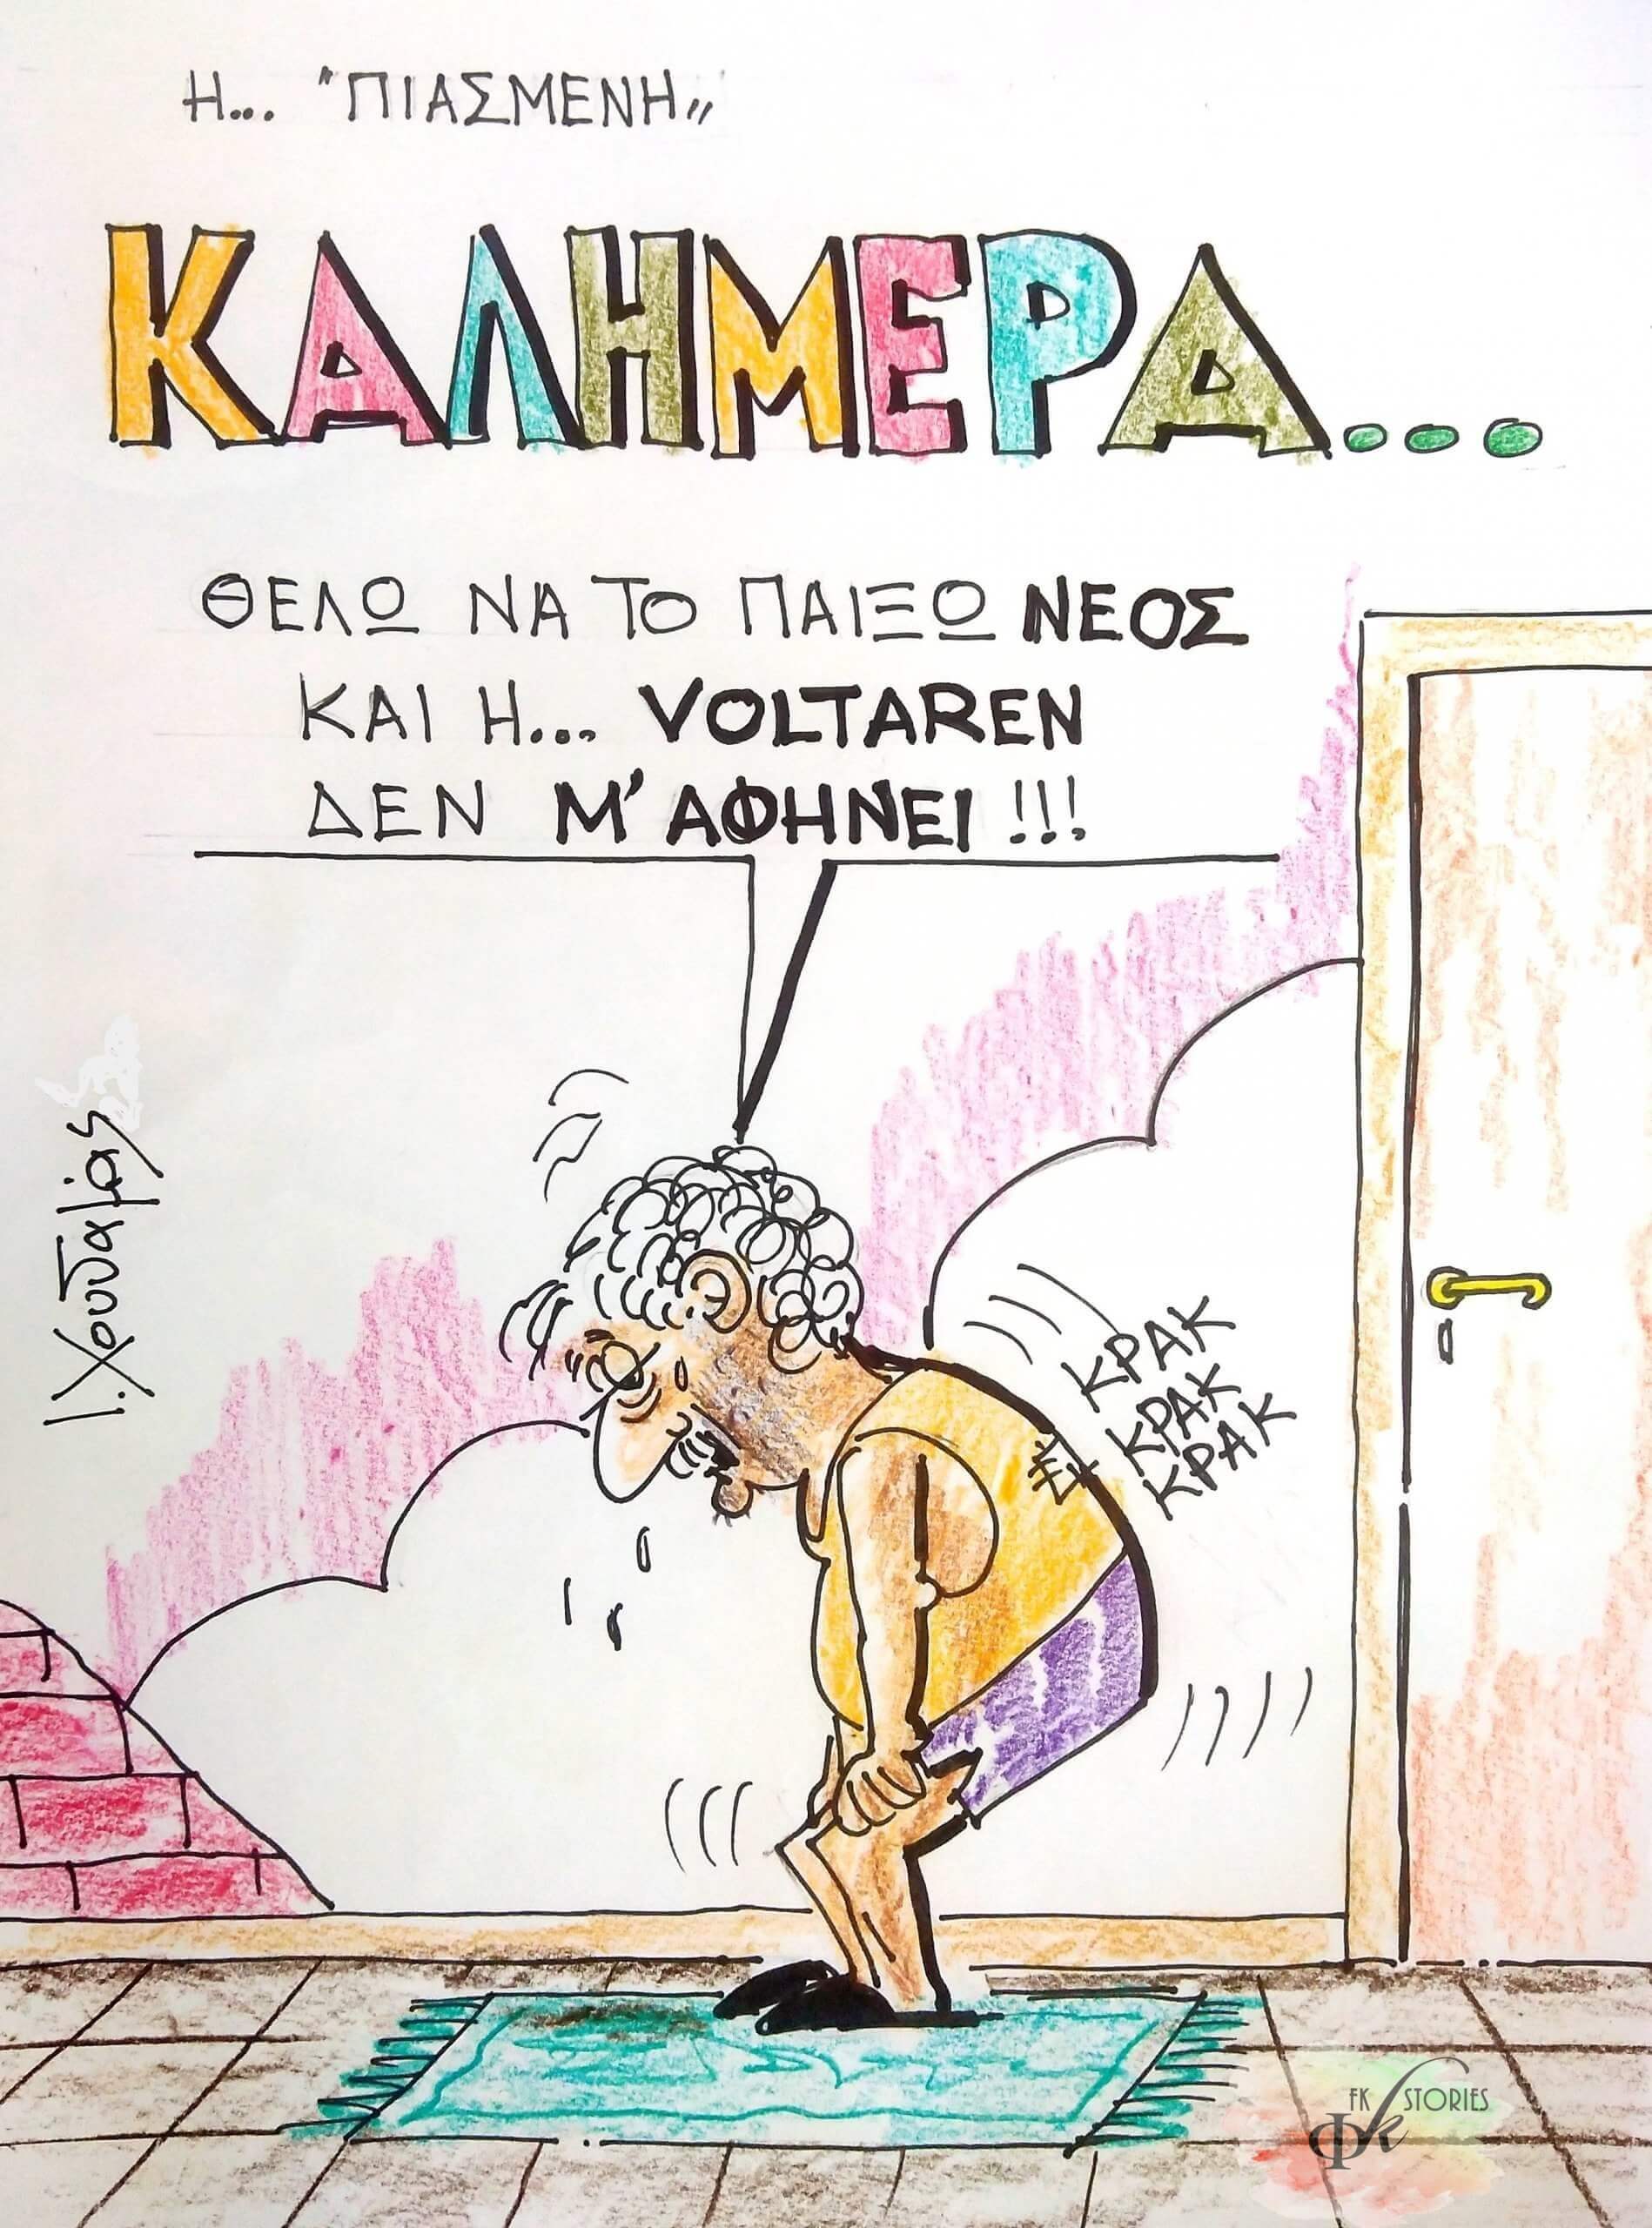 Η... "ΠΙΑΣΜΕΝΗ"
ΚΑΛΗΜΕΡΑ...
ΘΕΛΩ ΝΑ ΤΟ ΠΑΙΞΩ ΝΕΟΣ
ΚΑΙ Η... VOLTAREN
ΔΕΝ Μ' ΑΦΗΝΕΙ!!!
ΚΡΑΚ
ΚΡΑΚ
ΚΡΑΚ
FK STORIES